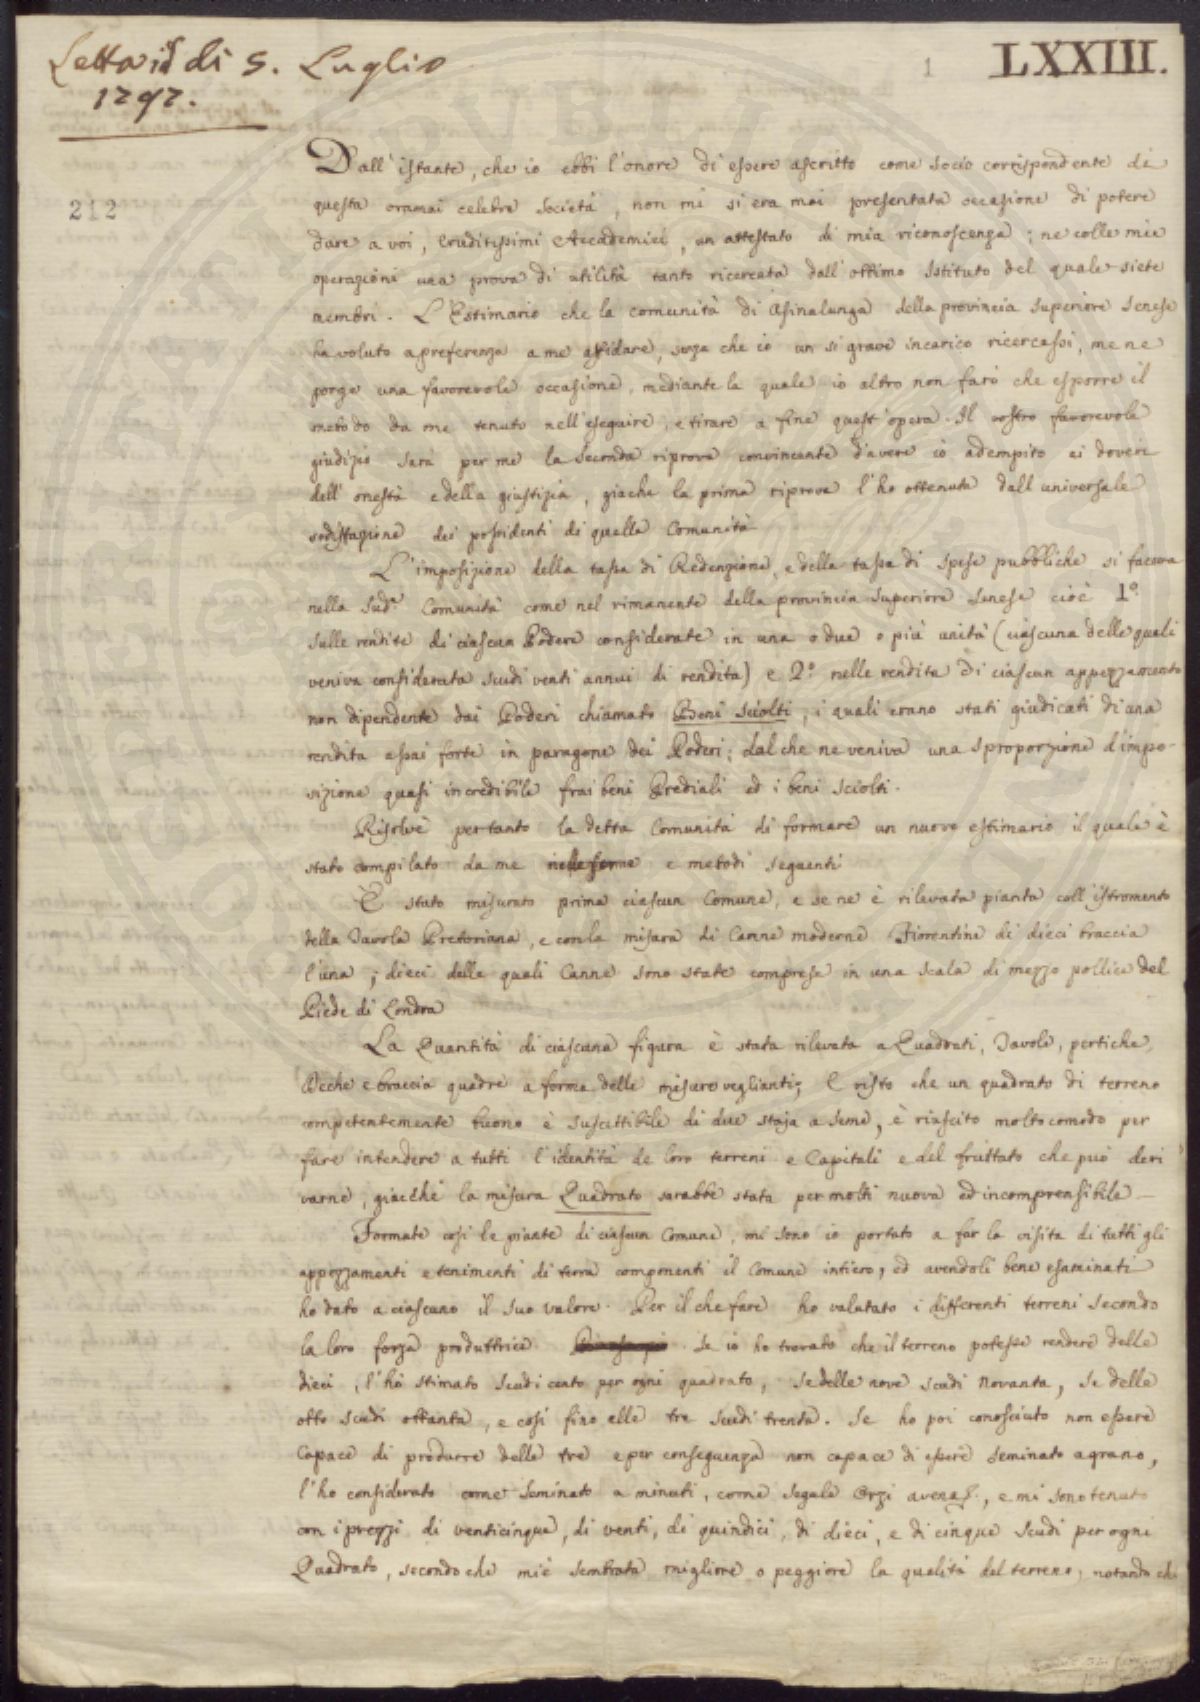 Letta il dì 5. Luglio
1797.
1
LXXIII.
212
Dall'istante, che io ebbi l'onore di essere ascritto come socio corrispondente di
questa oramai celebre Società, non mi si era mai presentata occasione di potere
dare a voi, Eruditissimi Accademici, un attestato di mia riconoscenza; ne colle mie
operazioni una prova di utilità tanto ricercata dall'ottimo Istituto del quale siete
membri. L'Estimario che la comunità di Asinalunga della provincia superiore senese
ha voluto a preferenza a me affidare, senza che io un si grave incarico ricercassi, me ne
porge una favorevole occasione, mediante la quale io altro non farò che esporre il
metodo da me tenuto nell'eseguire, e tirare a fine quest'opera. Il vostro favorevole
giudizio sarà per me la seconda riprova convincente d'avere io adempito ai doveri
dell'onestà e della giustizia, giache la prima riprova l'ho ottenuta dall'universale
sodisfazione dei possidenti di quella Comunità
L'imposizione della tassa di Redenzione, e della tassa di spese pubbliche si faceva
nella Sudª Comunità come nel rimanente della provincia superiore senese cioè 1º
sulle rendite di ciascun Podere considerate in una o due o più unità (ciascuna delle quali
veniva considerata scudi venti annui di rendita) e 2º nelle rendite di ciascun appezzamento
non dipendente dai Poderi chiamato Beni sciolti, i quali erano stati giudicati di una
rendita assai forte in paragone dei Poderi; dal che ne veniva una sproporzione d'impo-
sizione quasi incredibile frai beni Prediali ed i beni sciolti.
Risolvè pertanto la detta Comunità di formare un nuovo estimario il quale è
stato compilato da me nelle forme e metodi seguenti
È stato misurato prima ciascun Comune, e se ne è rilevata pianta coll'istromento
della Tavola Pretoriana, e con la misura di Canne moderne Fiorentine di dieci braccia
l'una; dieci delle quali Canne sono state comprese in una scala di mezzo pollice del
Piede di Londra
La Quantità di ciascuna figura è stata rilevata a Quadrati, Tavole, pertiche,
Deche e braccia quadre a forma delle misure veglianti; E visto che un quadrato di terreno
competentemente buono è suscettibile di due staja a seme, è riuscito molto comodo per
fare intendere a tutti l'identità de loro terreni e Capitali e del fruttato che può deri
varne, giacchè la misura Quadrato sarebbe stata per molti nuova ed incomprensibile —
Formate così le piante di ciascun Comune, mi sono io portato a far la visita di tutti gli
appezzamenti e tenimenti di terra componenti il Comune intiero, ed avendoli bene esaminati
ho dato a ciascuno il suo valore. Per il che fare ho valutato i differenti terreni secondo
la loro forza produttrice. Se io ho trovato che il terreno potesse rendere delle
dieci, l'hò stimato scudi cento per ogni quadrato, se delle nove scudi novanta, se delle
otto scudi ottanta, e così fino alle tre scudi trenta. Se ho poi conosciuto non essere
capace di produrre delle tre e per conseguenza non capace di essere seminato a grano,
l'ho considerato come seminato a minuti, come segale Orzi avena &., e mi sono tenuto
con i prezzi di venticinque, di venti, di quindici, di dieci, e di cinque scudi per ogni
Quadrato, secondo che mi è sembrata migliore o peggiore la qualità del terreno, notando che